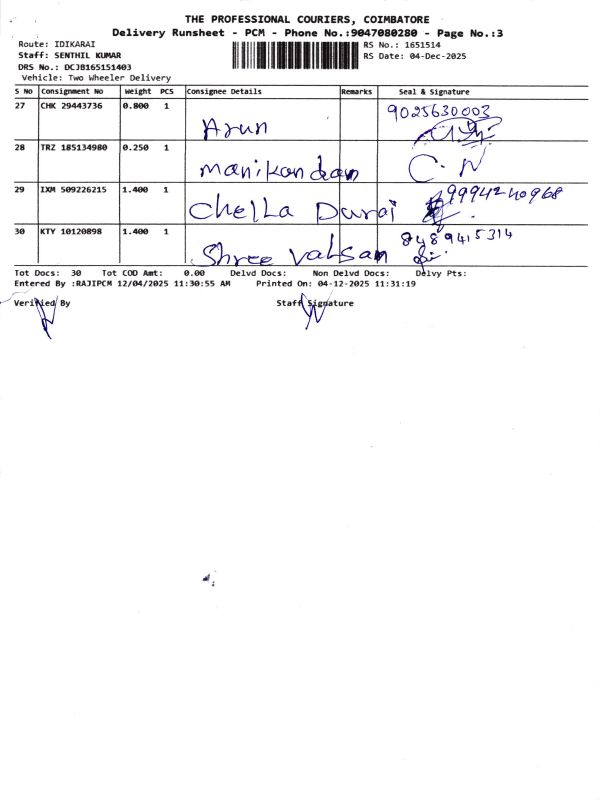 THE PROFESSIONAL COURIERS, COIMBATORE
Delivery Runsheet - PCM - Phone No.:9047080280 - Page No.:3
Route: IDIKARAI RS No.: 1651514
Staff: SENTHIL KUMAR RS Date: 04-Dec-2025
DRS No.: DCJB165151403
Vehicle: Two Wheeler Delivery
S No Consignment No Weight PCS Consignee Details Remarks Seal & Signature
27 CHK 29443736 0.800 1 Arun 9025630003
28 TRZ 185134980 0.250 1 manikandan C. N
29 IXM 509226215 1.400 1 Chella Durai 9994240968
30 KTY 10120898 1.400 1 Shree Vahsan 8489415314
Tot Docs: 30 Tot COD Amt: 0.00 Delvd Docs: Non Delvd Docs: Delvy Pts:
Entered By :RAJIPCM 12/04/2025 11:30:55 AM Printed On: 04-12-2025 11:31:19
Verified By Staff Signature